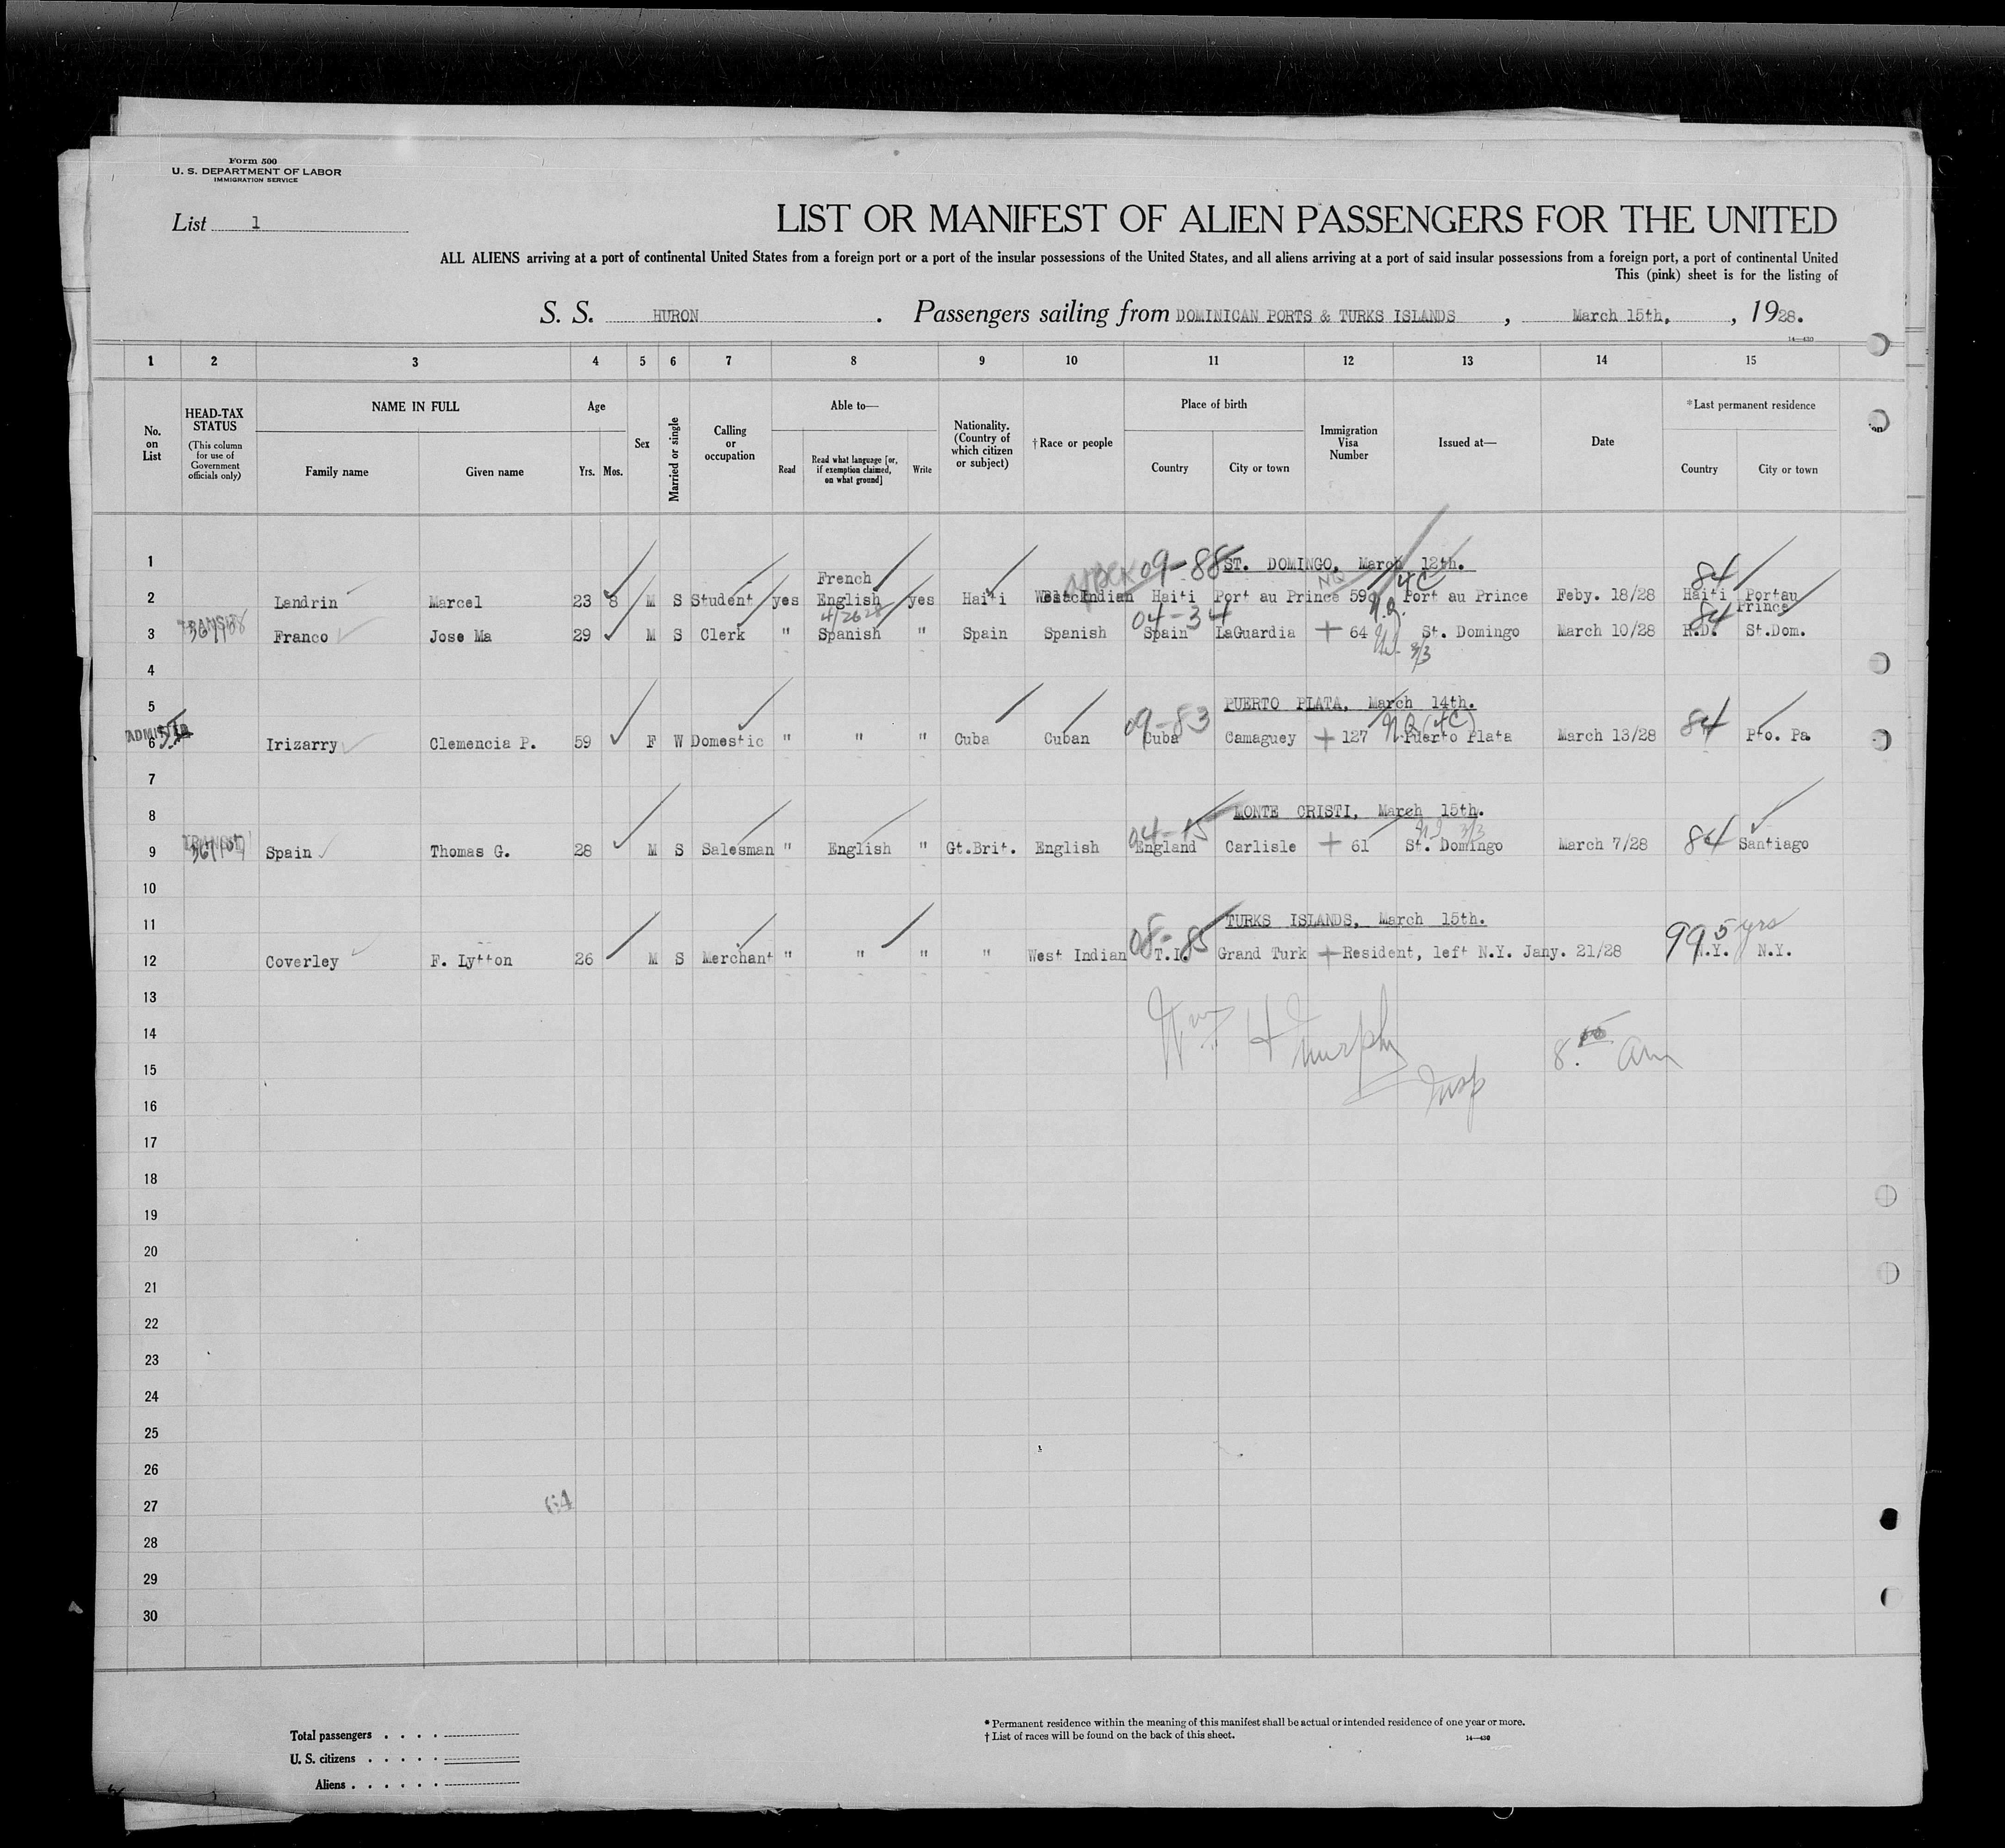 Form 500
U. S. DEPARTMENT OF LABOR
IMMIGRATION SERVICE
List 1
LIST OR MANIFEST OF ALIEN PASSENGERS FOR THE UNITED
ALL ALIENS arriving at a port of continental United States from a foreign port or a port of the insular possessions of the United States, and all aliens arriving at a port of said insular possessions from a foreign port, a port of continental United
This (pink) sheet is for the listing of
S. S. HURON . Passengers sailing from DOMINICAN PORTS & TURKS ISLANDS , March 15th, , 1928.
14—430
1 2 3 4 5 6 7 8 9 10 11 12 13 14 15
No. on List
HEAD-TAX STATUS (This column for use of Government officials only)
NAME IN FULL
Family name Given name
Age
Yrs. Mos.
Sex
Married or single
Calling or occupation
Able to—
Read
Read what language [or, if exemption claimed, on what ground]
Write
Nationality. (Country of which citizen or subject)
†Race or people
Place of birth
Country City or town
Immigration Visa Number
Issued at—
Date
*Last permanent residence
Country City or town
1 09-88 ST. DOMINGO, March 12th.
French NQ 4C 84
2 Landrin Marcel 23 8 M S Student yes English yes Haiti West Indian Haiti Port au Prince 59 N.Q. Port au Prince Feby. 18/28 Haiti Portau Prince
4/26 28 04-34 84
3 TRANSIT Franco Jose Ma 29 M S Clerk " Spanish " Spain Spanish Spain LaGuardia + 64 St. Domingo March 10/28 R.D. St.Dom.
3/3
4
5 PUERTO PLATA, March 14th.
ADMITTED 09-83 N.Q (4C) 84
6 Irizarry Clemencia P. 59 F W Domestic " " " Cuba Cuban Cuba Camaguey + 127 Puerto Plata March 13/28 Pto. Pa
7
8 MONTE CRISTI, March 15th.
04-15 3/3
9 TRANSIT Spain Thomas G. 28 M S Salesman " English " Gt.Brit. English England Carlisle + 61 St. Domingo March 7/28 84 Santiago
10
11 TURKS ISLANDS, March 15th.
08-85 99 5 yrs
12 Coverley F. Lytton 26 M S Merchant " " " " West Indian T.I. Grand Turk + Resident, left N.Y. Jany. 21/28 N.Y. N.Y.
13
14 Wm H Murphy
15 Insp 8. am
16
17
18
19
20
21
22
23
24
25
26
27 64
28
29
30
Total passengers . . . .
U. S. citizens . . . . .
Aliens . . . . . .
* Permanent residence within the meaning of this manifest shall be actual or intended residence of one year or more.
† List of races will be found on the back of this sheet.
14—430